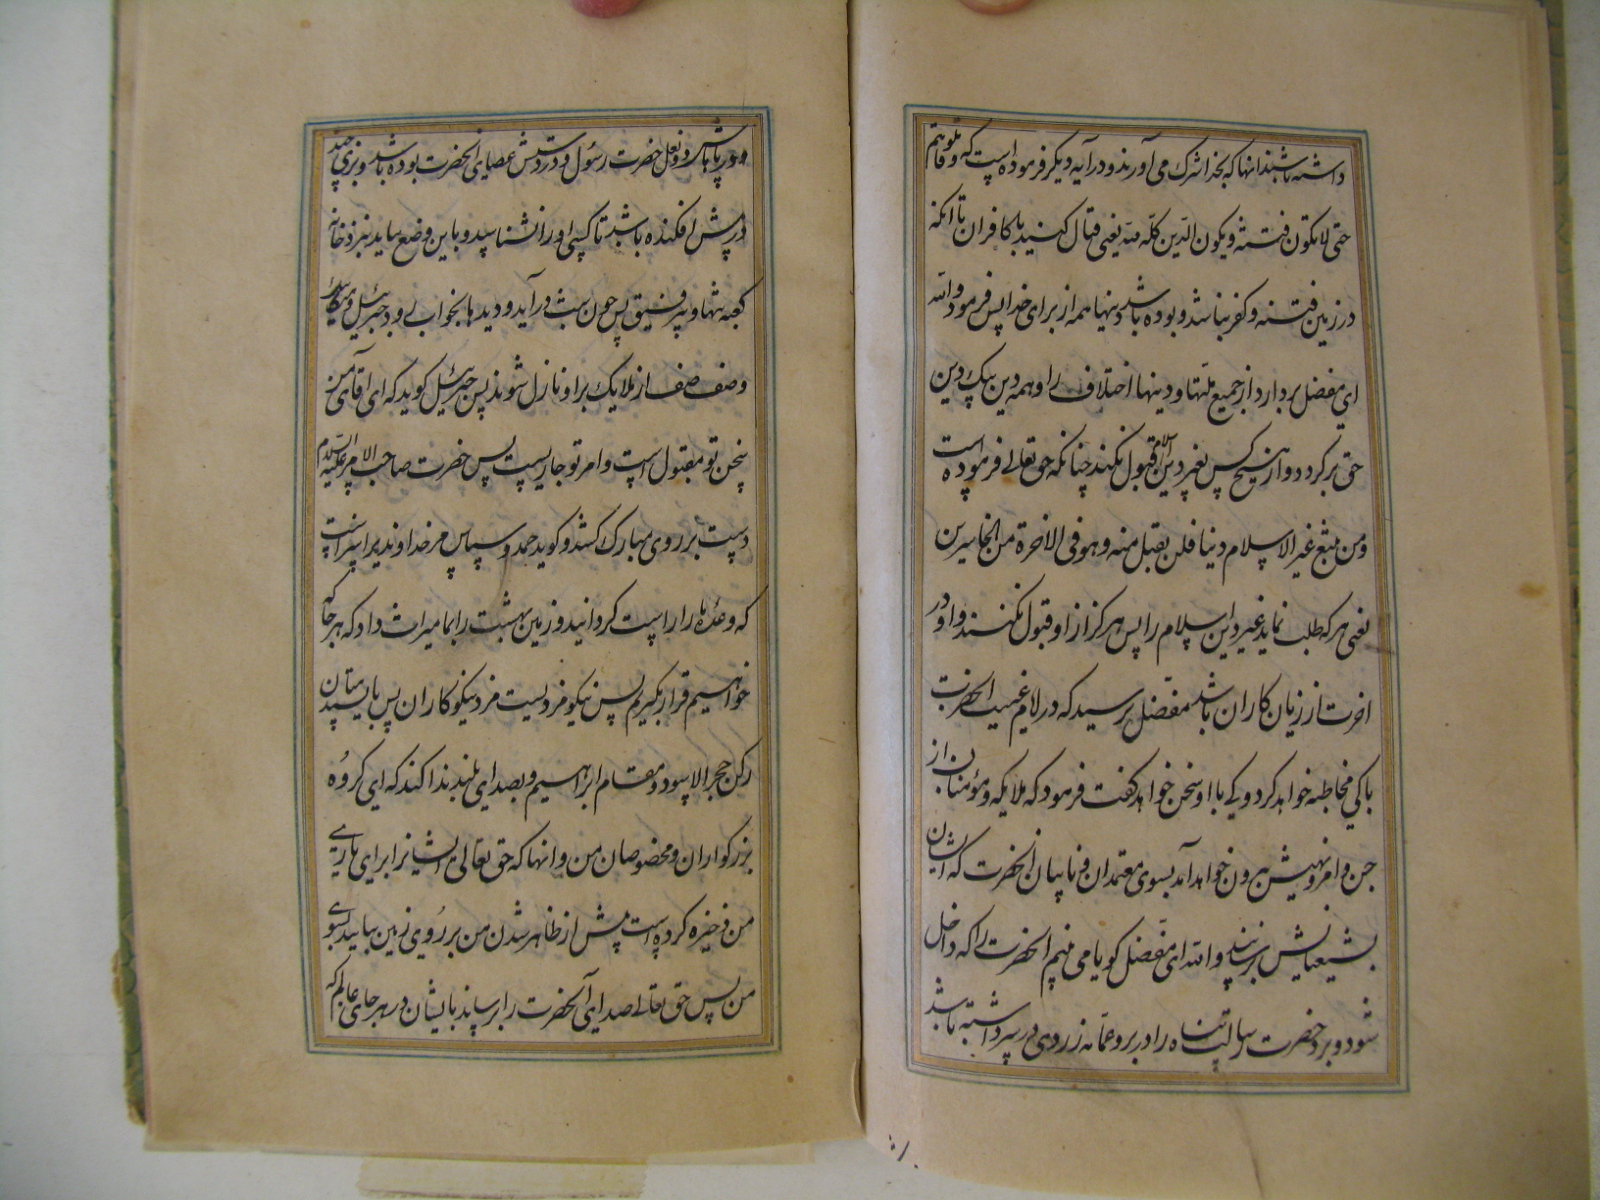 داشته باشند انها که بخدا شرک می آورند و در آیه دیگر فرموده است که و قاتلوهم
حتی لا تکون فتنة و یکون الدین کله لله یعنی قتال کنید با کافران تا آنکه
در زمین فتنه و کفر نباشد و بوده باشد دینها همه از برای خدا پس فرمود والله
ای مفضل بردارد از جمیع ملتها و دینها اختلاف را و همه دین بیک دین
حق برگردد و از هیچ کس بغیر دین اسلام قبول نکند چنانکه حق تعالی فرموده است
و من یبتغ غیر الاسلام دینا فلن یقبل منه و هو فی الاخرة من الخاسرین
یعنی هر که طلب نماید غیر دین اسلام را پس هرگز از او قبول نکنند و او در
آخرت از زیان کاران باشد مفضل پرسید که در ایام غیبت آنحضرت
با کی مخاطبه خواهد کرد و کی با او سخن خواهد گفت فرمود که ملایکه و مؤمنان از
جن و امر و نهیش بیرون خواهد آمد بسوی معتمدان و نایبان آنحضرت که ایشان
بشیعیانش برسانند و الله ای مفضل گویا می بینم آنحضرت را که داخل
شود و برد حضرت رسالت پناه را در بر و عمامه زردی در سر داشته باشد
و در پاهاش دو نعل حضرت رسول و در دستش عصای آنحضرت بوده باشد و بزی چند
در پیش افکنده باشد تا کسی او را نشناسد و باین وضع بیاید بنزد خانه
کعبه تنها و بی رفیق پس چون شب در آید و دیدها بخواب رود جبرئیل و میکائیل
و صف صف از ملایک بر او نازل شوند پس جبرئیل گوید که ای آقای من
سخن تو مقبول است و امر تو جاریست پس حضرت صاحب الامر علیه السلام
دست بر روی مبارک کشد و گوید حمد و سپاس مر خداوندیرا سزاست
که وعده ما را راست گردانید و زمین بهشت را بما میراث داد که هر جا که
خواهیم قرار بگیریم پس نیکو مزدیست مزد نیکو کاران پس بایستد میان
رکن حجر الاسود و مقام ابراهیم و بصدای بلند ندا کند که ای گروه
بزرگواران و مخصوصان من و انها که حق تعالی ایشانرا برای یاری
من ذخیره کرده است پیش از ظاهر شدن من بر روی زمین بیایید بسوی
من پس حق تعالی صدای آنحضرت را برساند بایشان در هر جای عالم که